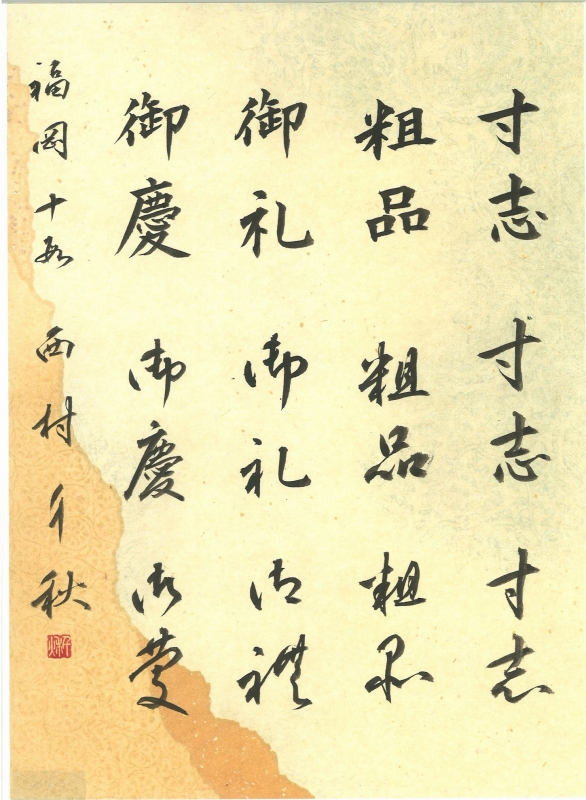 寸志 寸志 寸志
粗品 粗品 粗品
御礼 御礼 御禮
御慶 御慶 御慶
福岡 十段 西村千秋
千秋